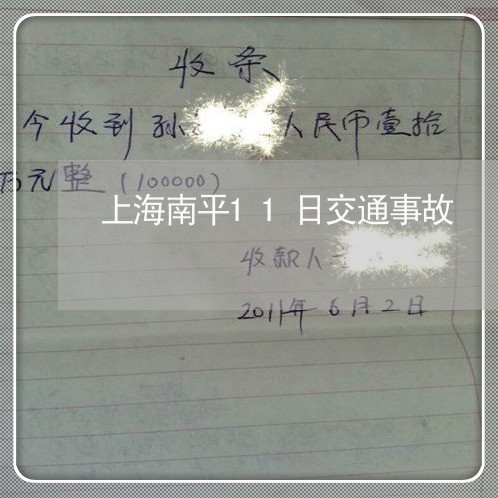 收条
今收到孙 人民币壹拾
万元整（100000）
上海南平11日交通事故
收款人
2011年6月2日